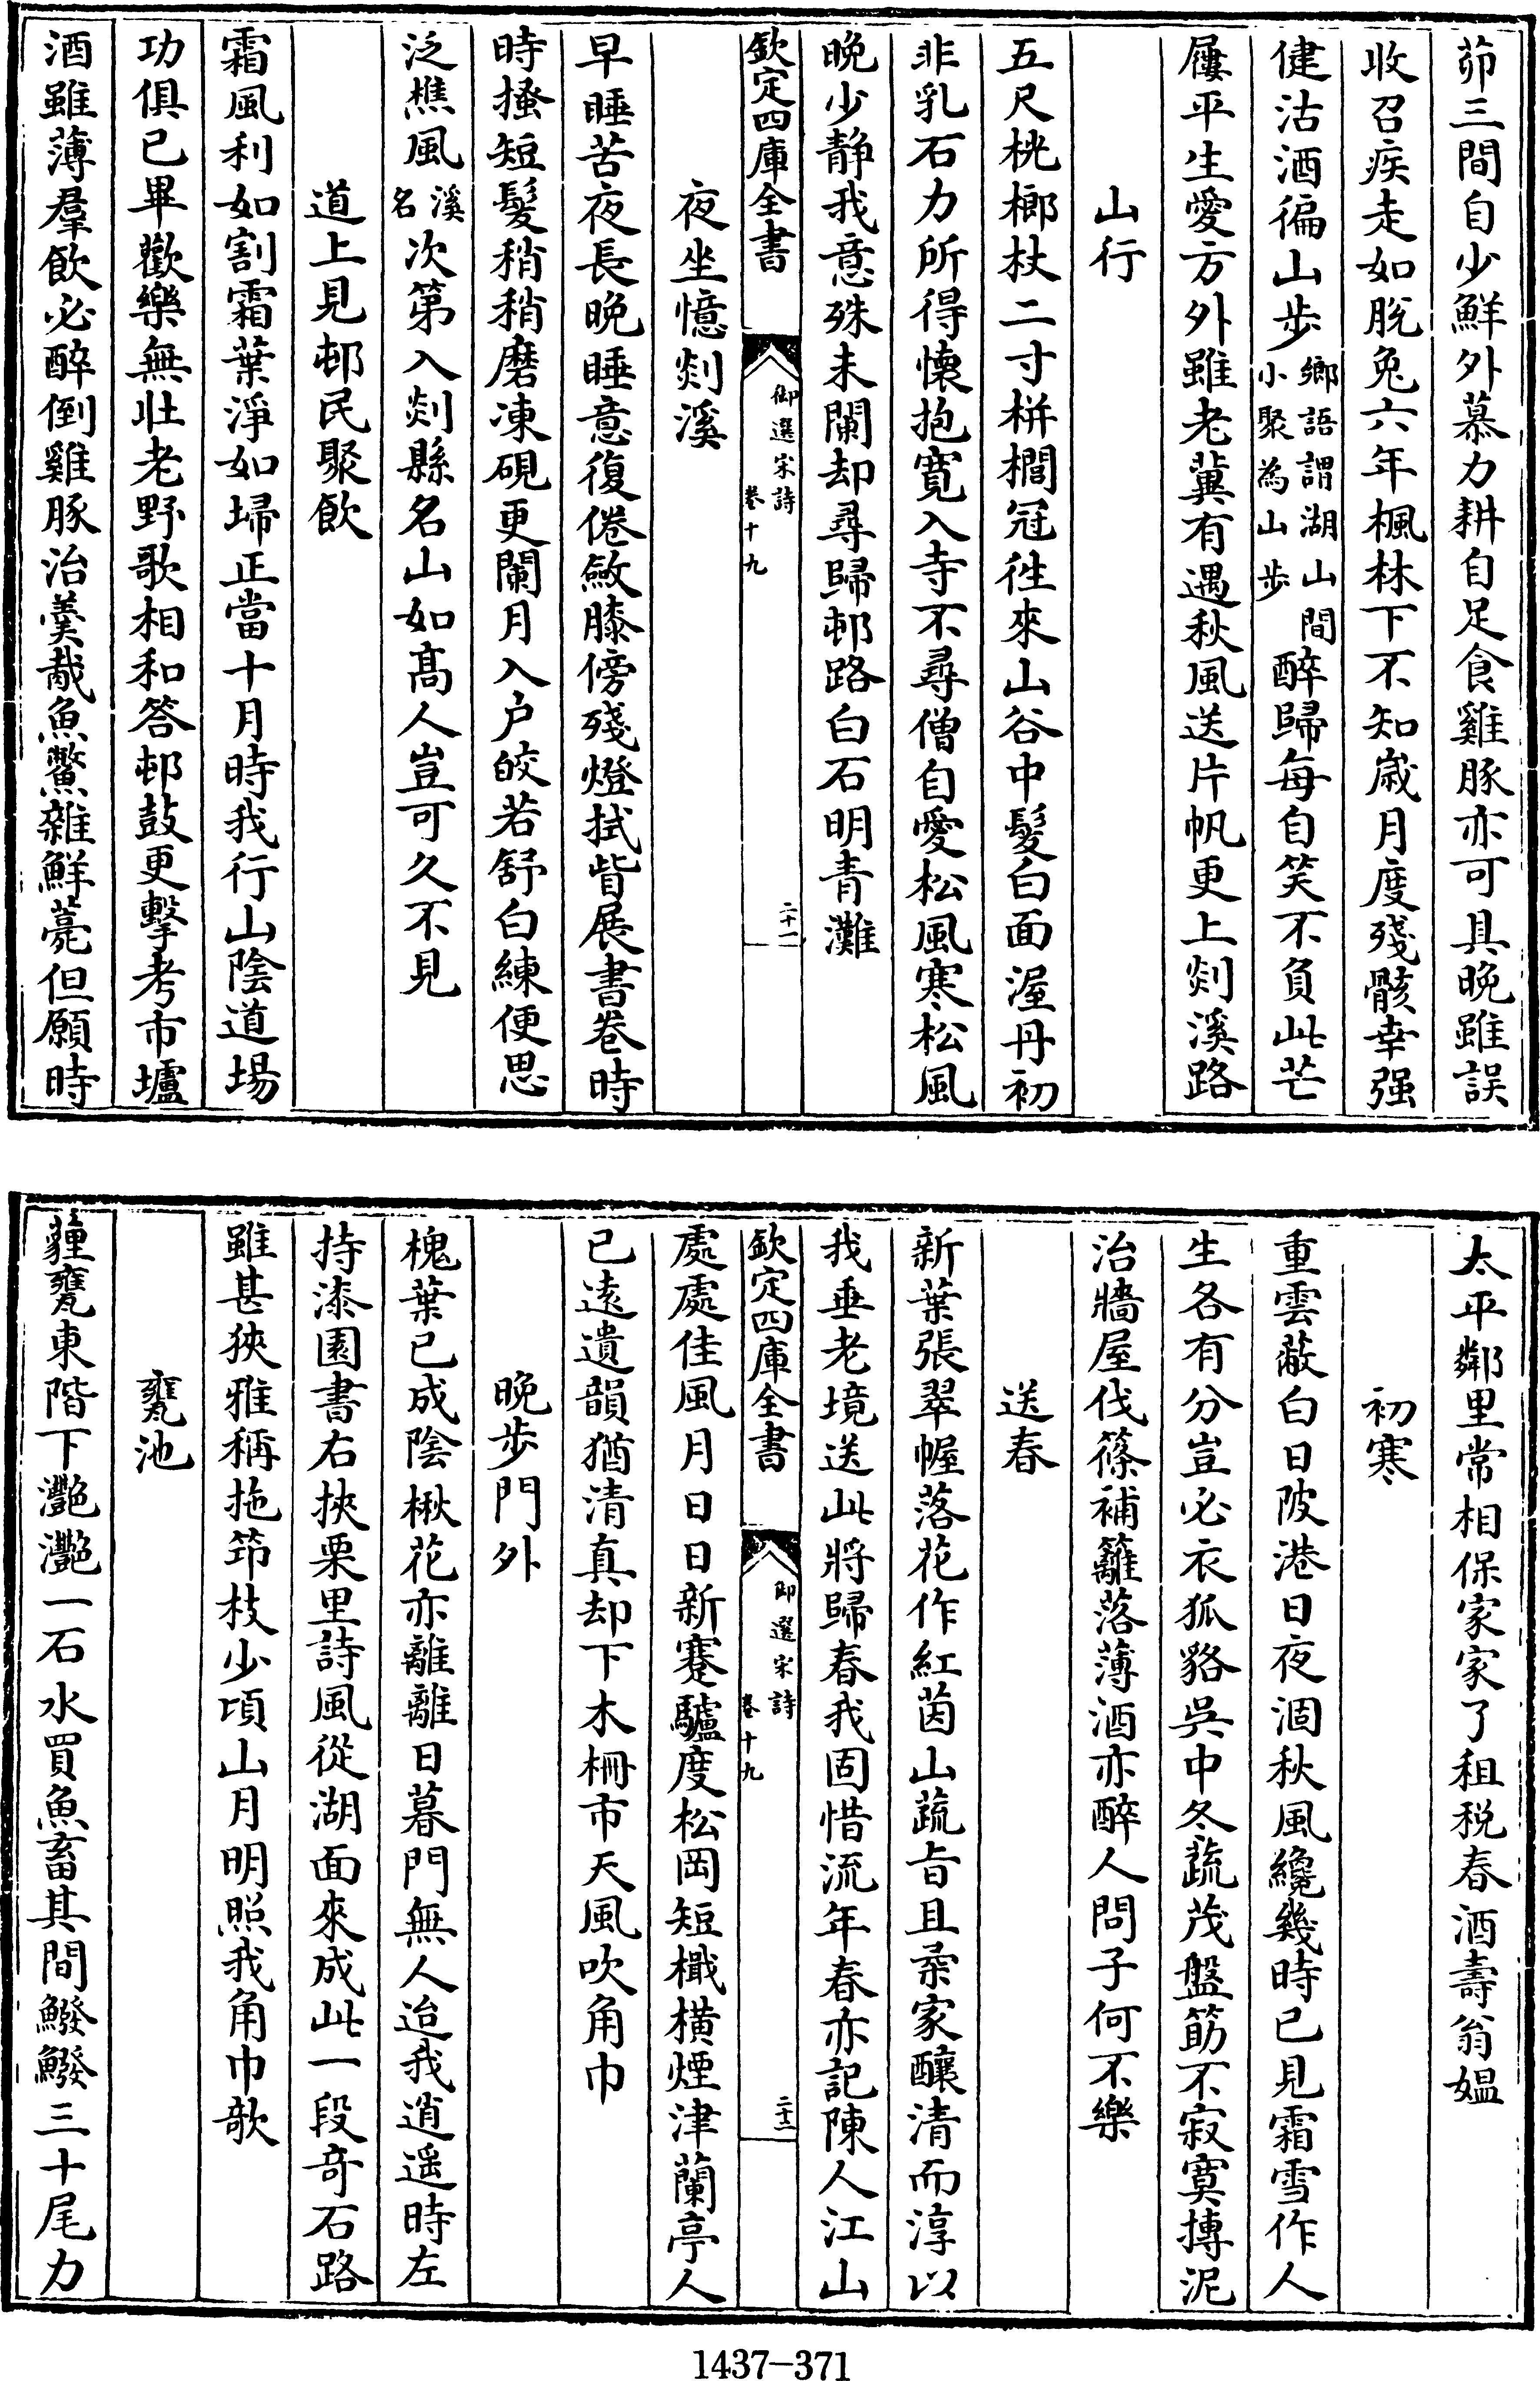 茆三間自少鮮外慕力耕自足食雞豚亦可具晚雖誤
收召疾走如脫兔六年楓林下不知歲月度殘骸幸强
健沽酒徧山步鄉語謂湖山間小聚為山步醉歸每自笑不負此芒
屨平生愛方外雖老冀有遇秋風送片帆更上剡溪路
山行
五尺桄榔杖二寸栟櫚冠徃來山谷中髮白面渥丹初
非乳石力所得懐抱寛入寺不尋僧自愛松風寒松風
晚少靜我意殊未闌却尋歸邨路白石明青灘
欽定四庫全書
御選宋詩
卷十九
二十一
夜坐憶剡溪
早睡苦夜長晚睡意復倦斂膝傍殘燈拭眥展書卷時
時搔短髮稍稍磨凍硯更闌月入户皎若舒白練便思
泛樵風溪名次第入剡縣名山如髙人豈可久不見
道上見邨民聚飲
霜風利如割霜葉淨如埽正當十月時我行山陰道場
功俱已畢歡樂無壮老野歌相和答邨鼓更擊考市壚
酒雖薄羣飲必醉倒雞豚治羹胾魚鱉雜鮮薧但願時
太平鄰里常相保家家了租税春酒壽翁媼
初寒
重雲蔽白日陂港日夜涸秋風纔幾時已見霜雪作人
生各有分豈必衣狐貉吳中冬蔬茂盤筯不寂寞摶泥
治牆屋伐篠補籬落薄酒亦醉人問子何不樂
送春
新葉張翠幄落花作紅茵山蔬旨且柔家釀清而淳以
我垂老境送此將歸春我固惜流年春亦記陳人江山
欽定四庫全書
御選宋詩
卷十九
二十二
處處佳風月日日新蹇驢度松岡短檝橫煙津蘭亭人
已逺遺韻猶清真却下木柵市天風吹角巾
晚步門外
槐葉已成陰楸花亦離離日暮門無人迨我逍遥時左
持漆園書右挾栗里詩風從湖面來成此一段奇石路
雖甚狹雅稱拖筇枝少頃山月明照我角巾欹
甕池
薶甕東階下灩灩一石水買魚畜其間鱍鱍三十尾力
1437-371